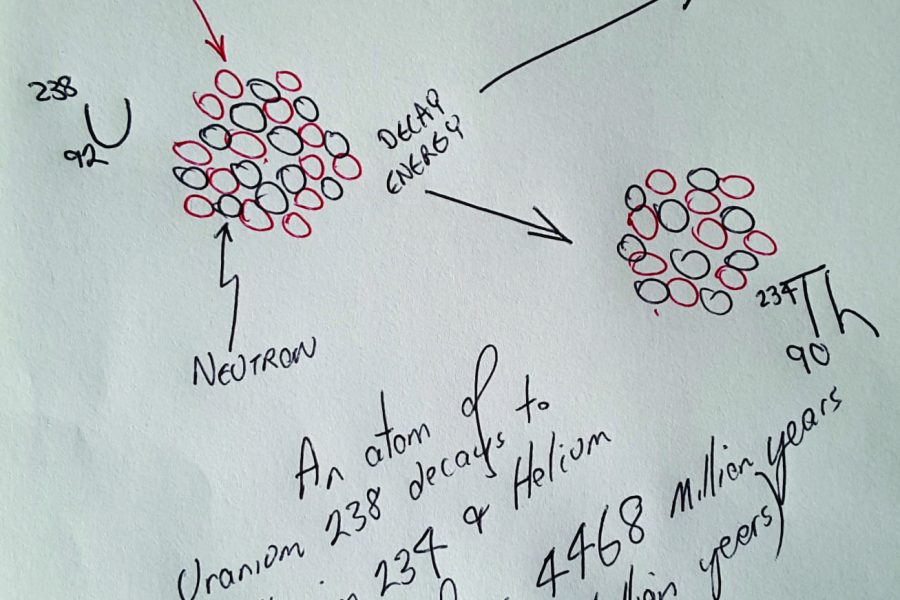 238
U
92
DECAY
ENERGY
NEUTRON
234
Th
90
An atom of
Uranium 238 decays to
234 & Helium
4468 Million years
years)